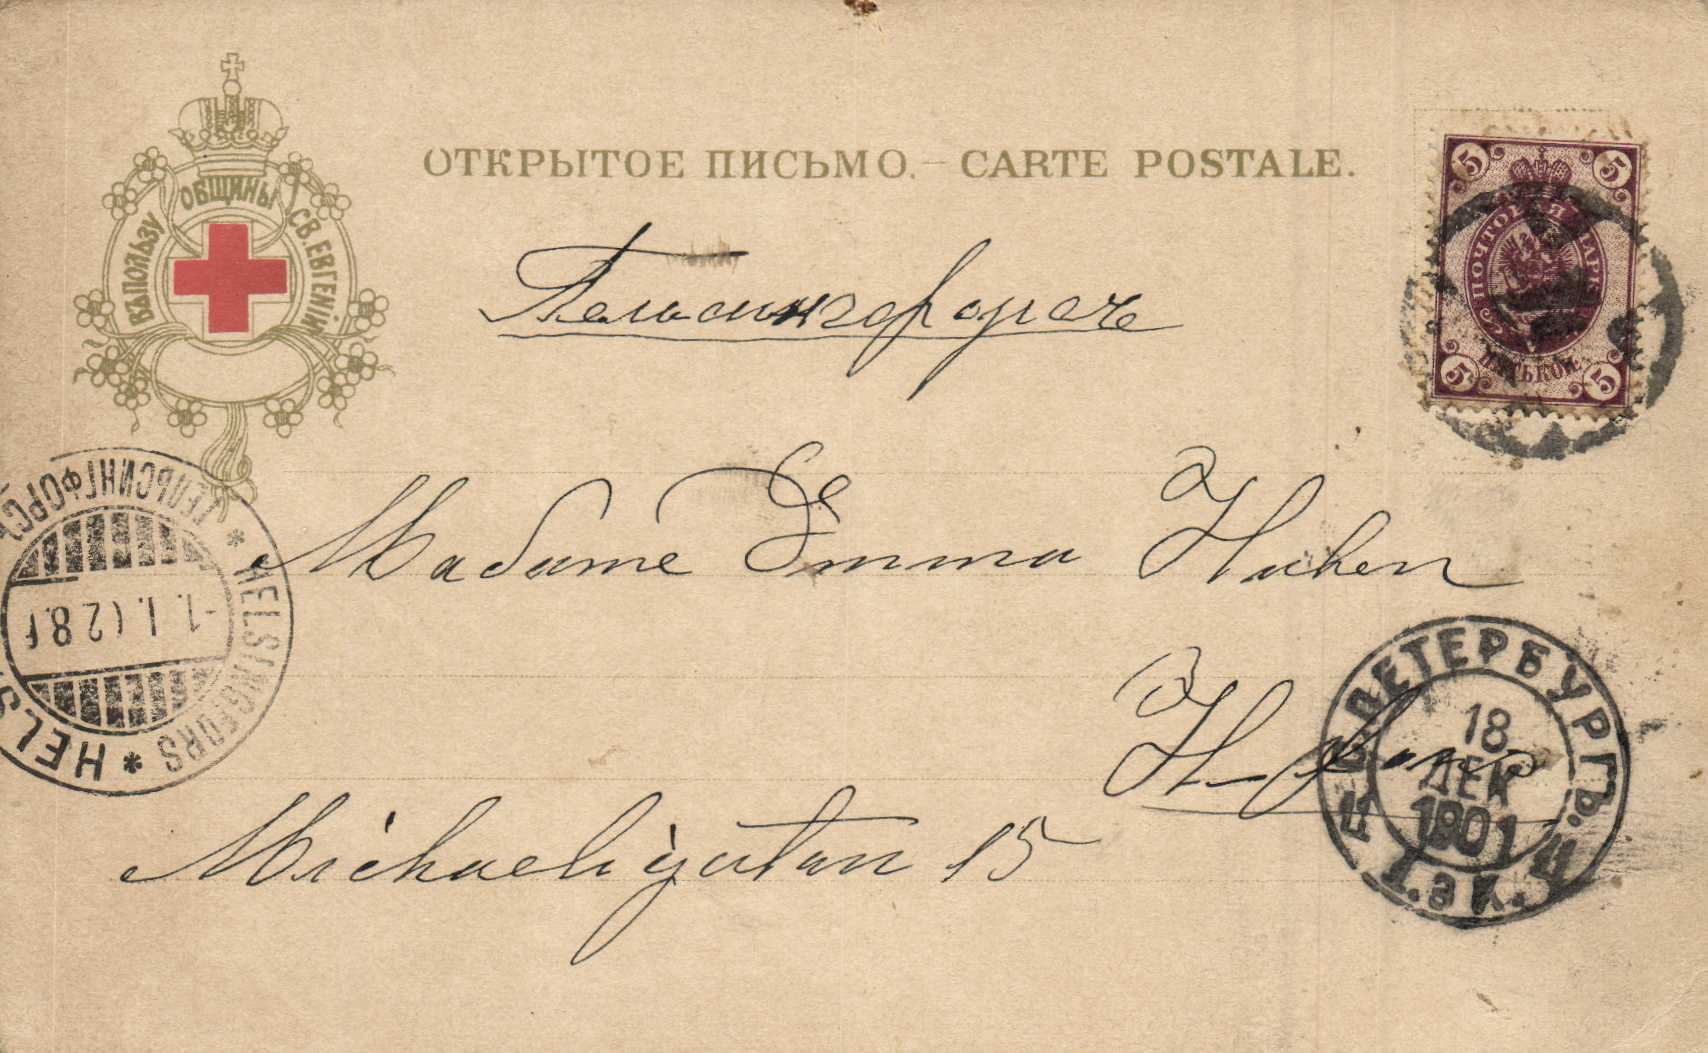 ОТКРЫТОЕ ПИСЬМО. – CARTE POSTALE.
ВЪ ПОЛЬЗУ ОБЩИНЫ СВ. ЕВГЕНІИ
5 5
ПОЧТОВАЯ МАРКА
ПЯТЬ КОП.
5 5
Гельсингфорсъ
Madame Emma
H-fors
Michaeligatan 15
ГЕЛЬСИНГФОРСЪ
* HELSINGFORS *
HELS
С ПЕТЕРБУРГЪ.
18
ДЕК
1901